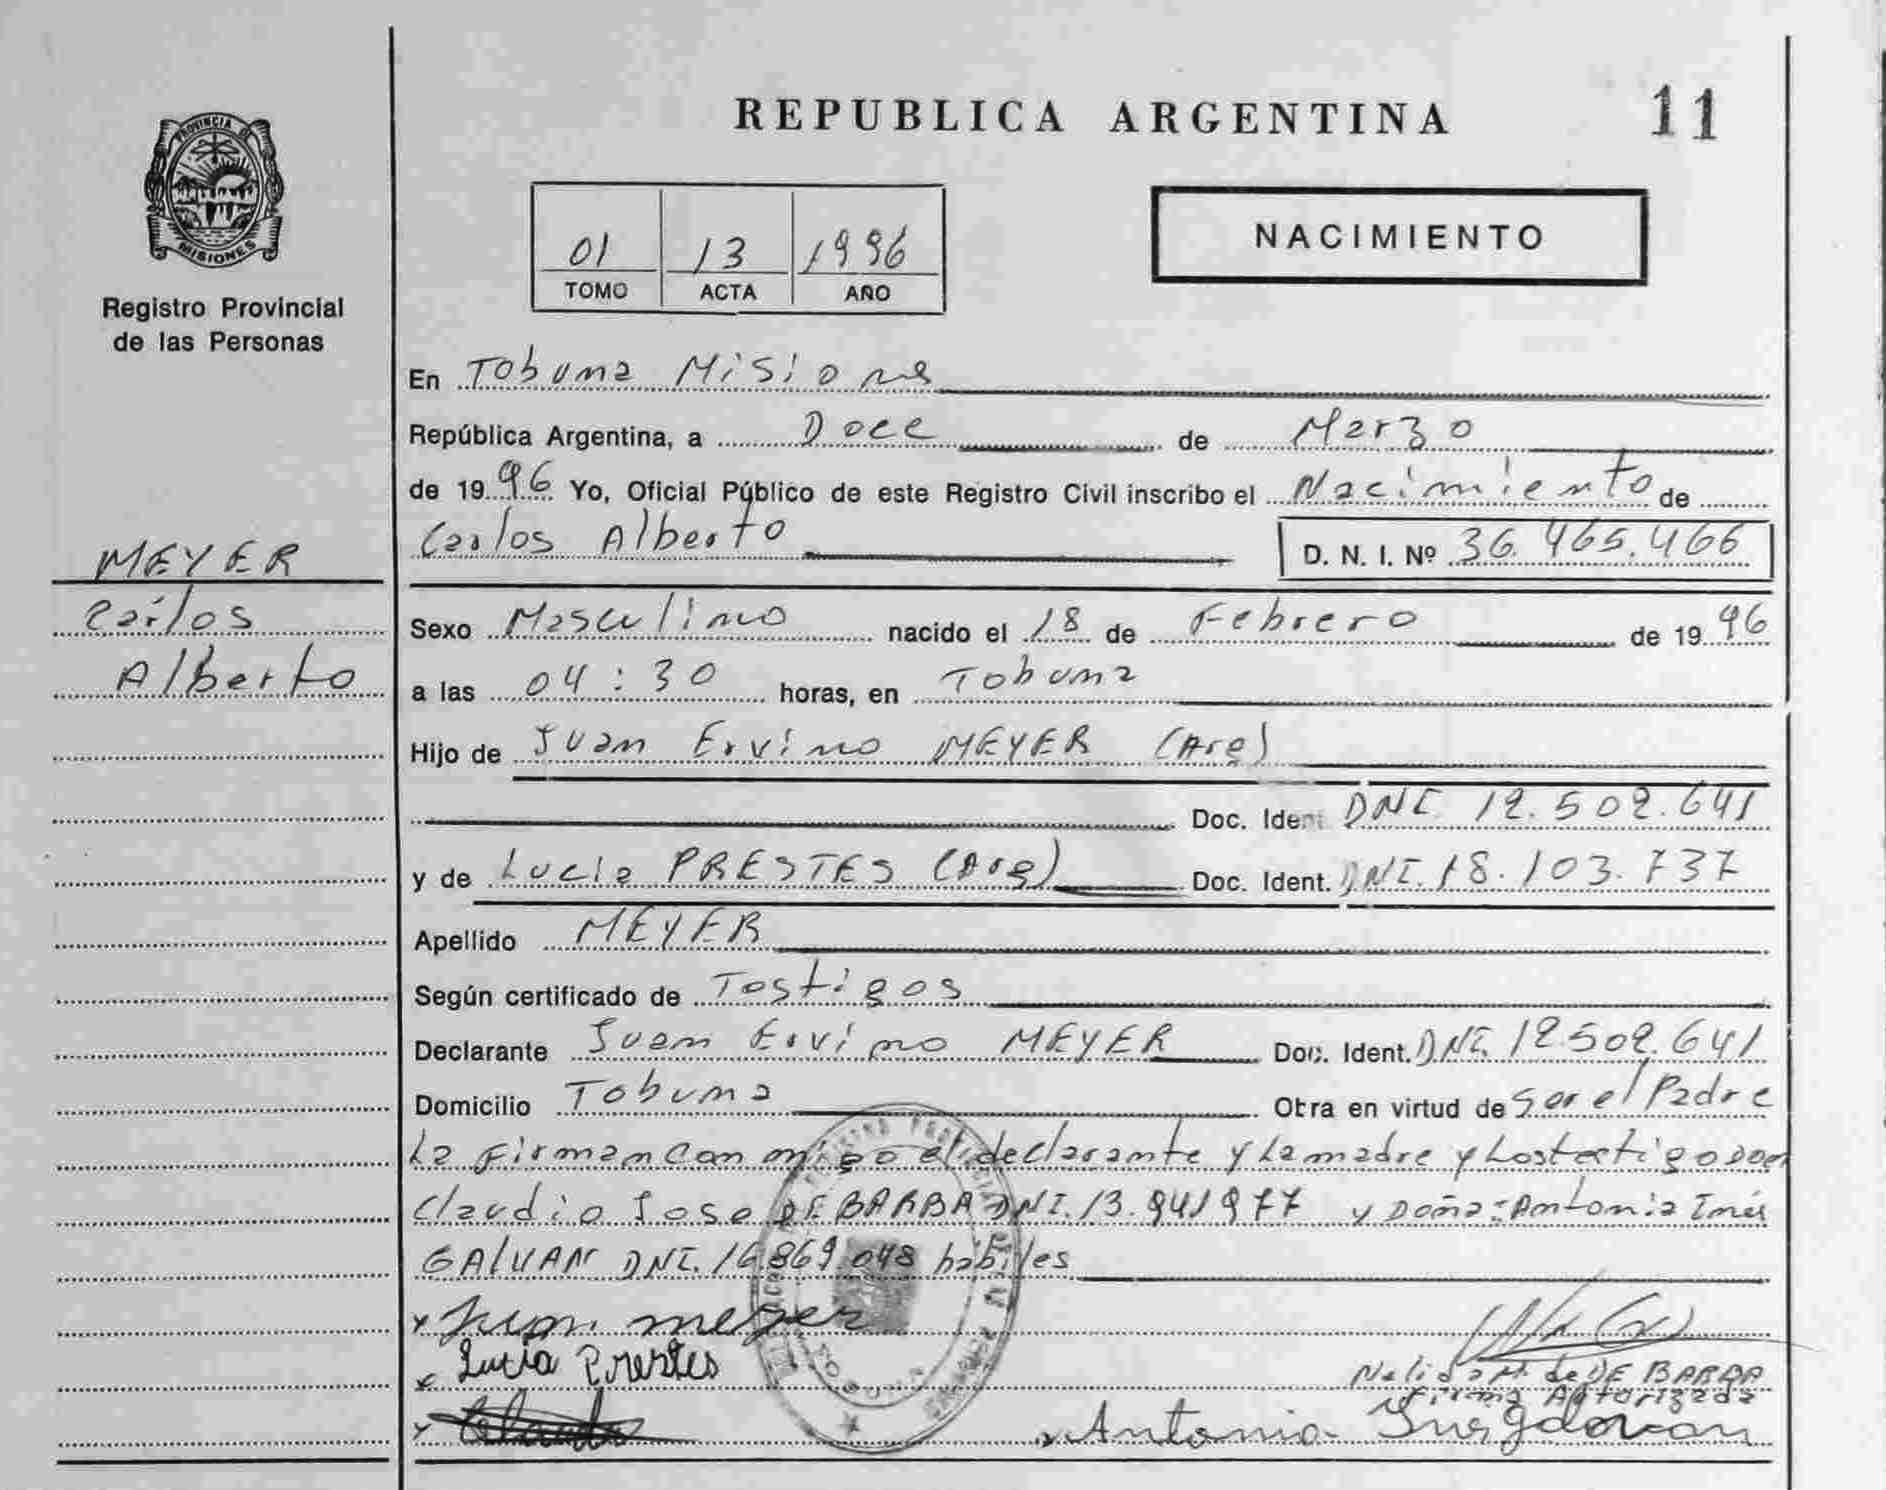 REPUBLICA ARGENTINA
11
PROVINCIA DE
MISIONES
Registro Provincial
de las Personas
01 13 1996
TOMO ACTA AÑO
NACIMIENTO
En Tobuna Misiones
República Argentina, a Doce de Marzo
de 1996 Yo, Oficial Público de este Registro Civil inscribo el Nacimiento de
Carlos Alberto D. N. I. Nº 36.465.466
MEYER
Carlos
Alberto
Sexo Masculino nacido el 18 de Febrero de 1996
a las 04:30 horas, en Tobuna
Hijo de Juan Ervino MEYER (Arg)
Doc. Ident. DNI 12.502.641
y de Lucia PRESTES (Arg) Doc. Ident. DNI.18.103.737
Apellido MEYER
Según certificado de Testigos
Declarante Juan Ervino MEYER Doc. Ident. DNI.12.502.641
Domicilio Tobuna Otra en virtud de Ser el Padre
La Firman con migo el declarante y La madre y Los testigo Don
Claudio Jose DE BARBA DNI.13.941977 y Doña: Antonia Inés
GALVAN DNI.16.869.048 habiles
x Juan meyer
x Lucia Prestes
Nelida M. de DE BARBA
Firma Autorizada
x Antonia